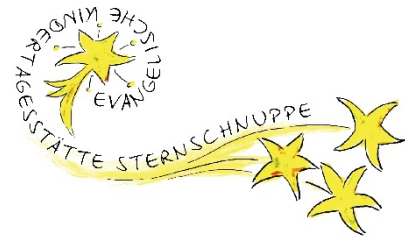 EVANGELISCHE KINDERTAGESSTÄTTE STERNSCHNUPPE